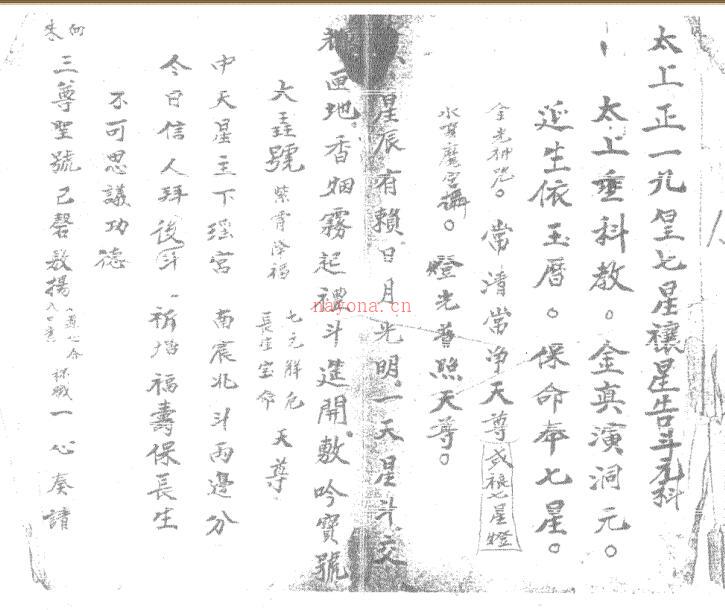 太上正一九皇七星禳星告斗元科
太上垂科教。金真演洞元。
延生依玉曆。保命奉七星。
金光神咒。常清常净天尊 或禳七星燈
燈光普照天尊。
星辰有賴日月光明一天星斗交
匝地香烟霧起禮斗筵開敷吟寶號
大聖號 紫霄降福 七元解厄 長生宝命 天尊
中天星主下瑶宮 南宸北斗两邊分
今日信人拜後斗 祈增福壽保長生
不可思議功德
三尊聖號已磬敷揚 一心奏請
nayona.cn